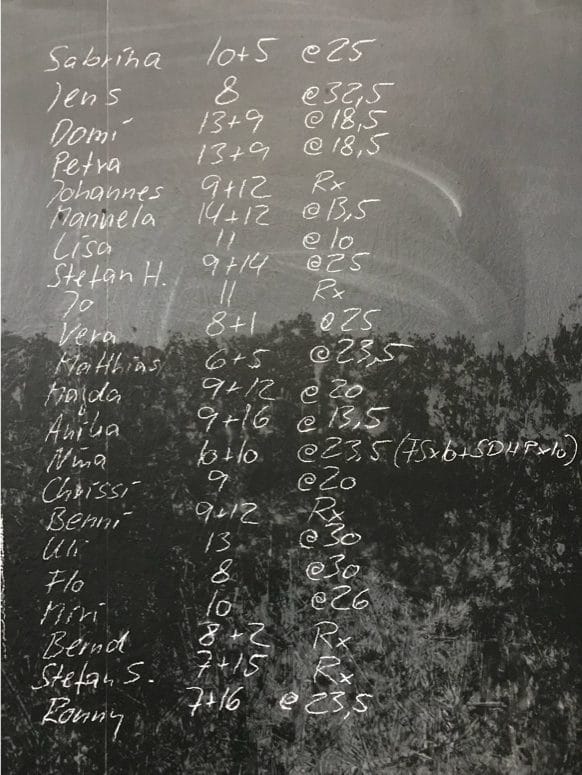 Sabrina 10+5 @25
Jens 8 @32,5
Domi 13+9 @18,5
Petra 13+9 @18,5
Johannes 9+12 Rx
Manuela 14+12 @13,5
Lisa 11 @10
Stefan H. 9+14 @25
Jo 11 Rx
Vera 8+1 @25
Matthias 6+5 @23,5
Majda 9+12 @20
Anika 9+16 @13,5
Nina 10+10 @23,5
Chrissi 9 @20
Benni 9+12 Rx
Uli 13 @30
Flo 8 @30
Miri 10 @26
Bernd 8+2 Rx
Stefan S. 7+15 Rx
Ronny 7+16 @23,5